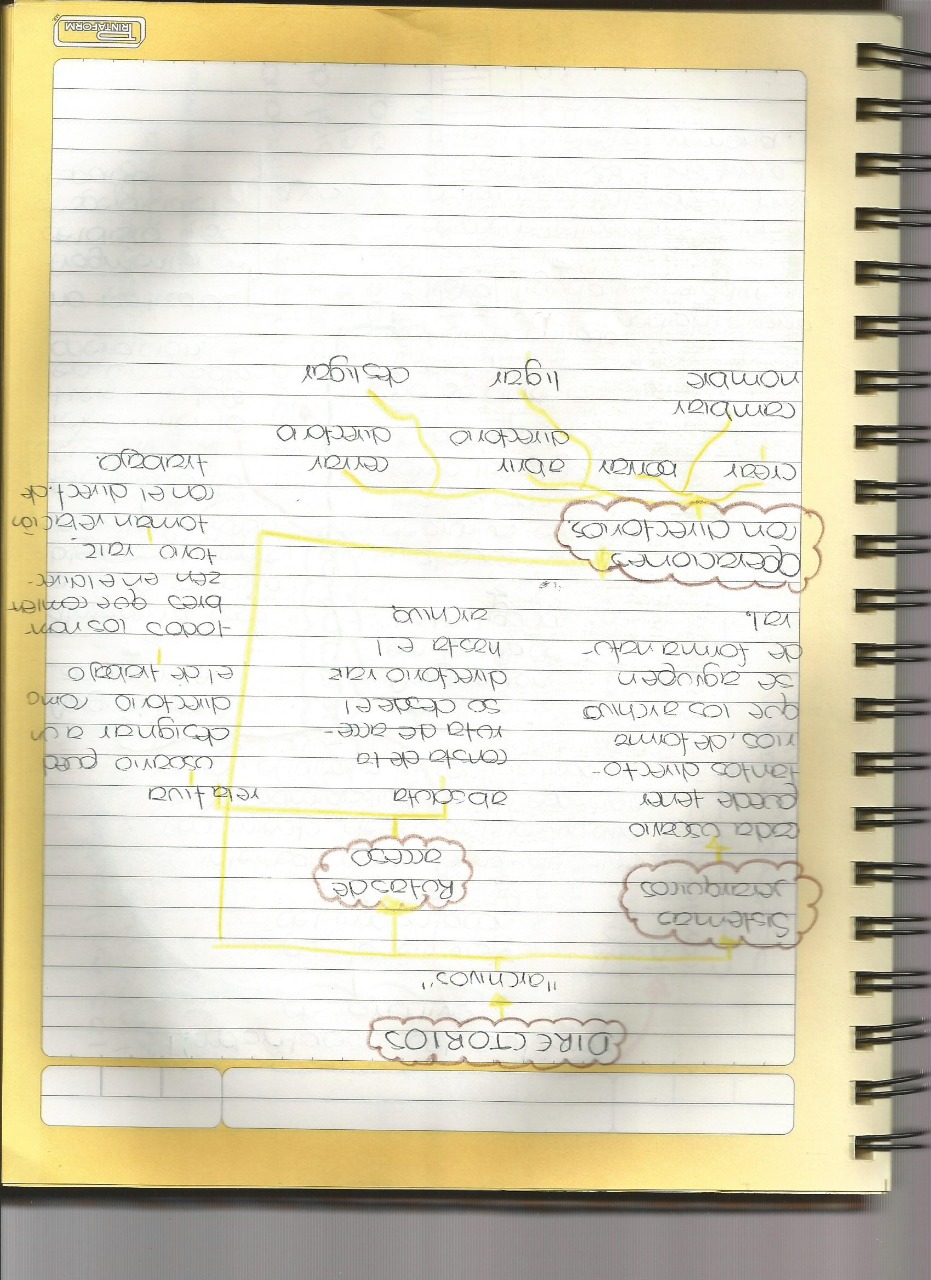 DIRECTORIOS
"archivos"
Sistemas
jerarquicos
cada usuario
puede tener
tantos directo-
rios, de forma
que los archivo
se agrupen
de forma natu-
ral.
Rutas de
acceso
absoluta
consta de la
ruta de acce-
so desde el
directorio raiz
hasta el
archivo
relativa
usuario pued
designar a un
directorio como
el de trabajo
todos los nom
bres que comien
zen en el direc-
torio raiz
toman relación
con el direct. de
trabajo.
operaciones
con directorios.
crear
borrar
abrir
directorio
cerrar
directorio
cambiar
nombre
ligar
desligar
PRINTAFORM